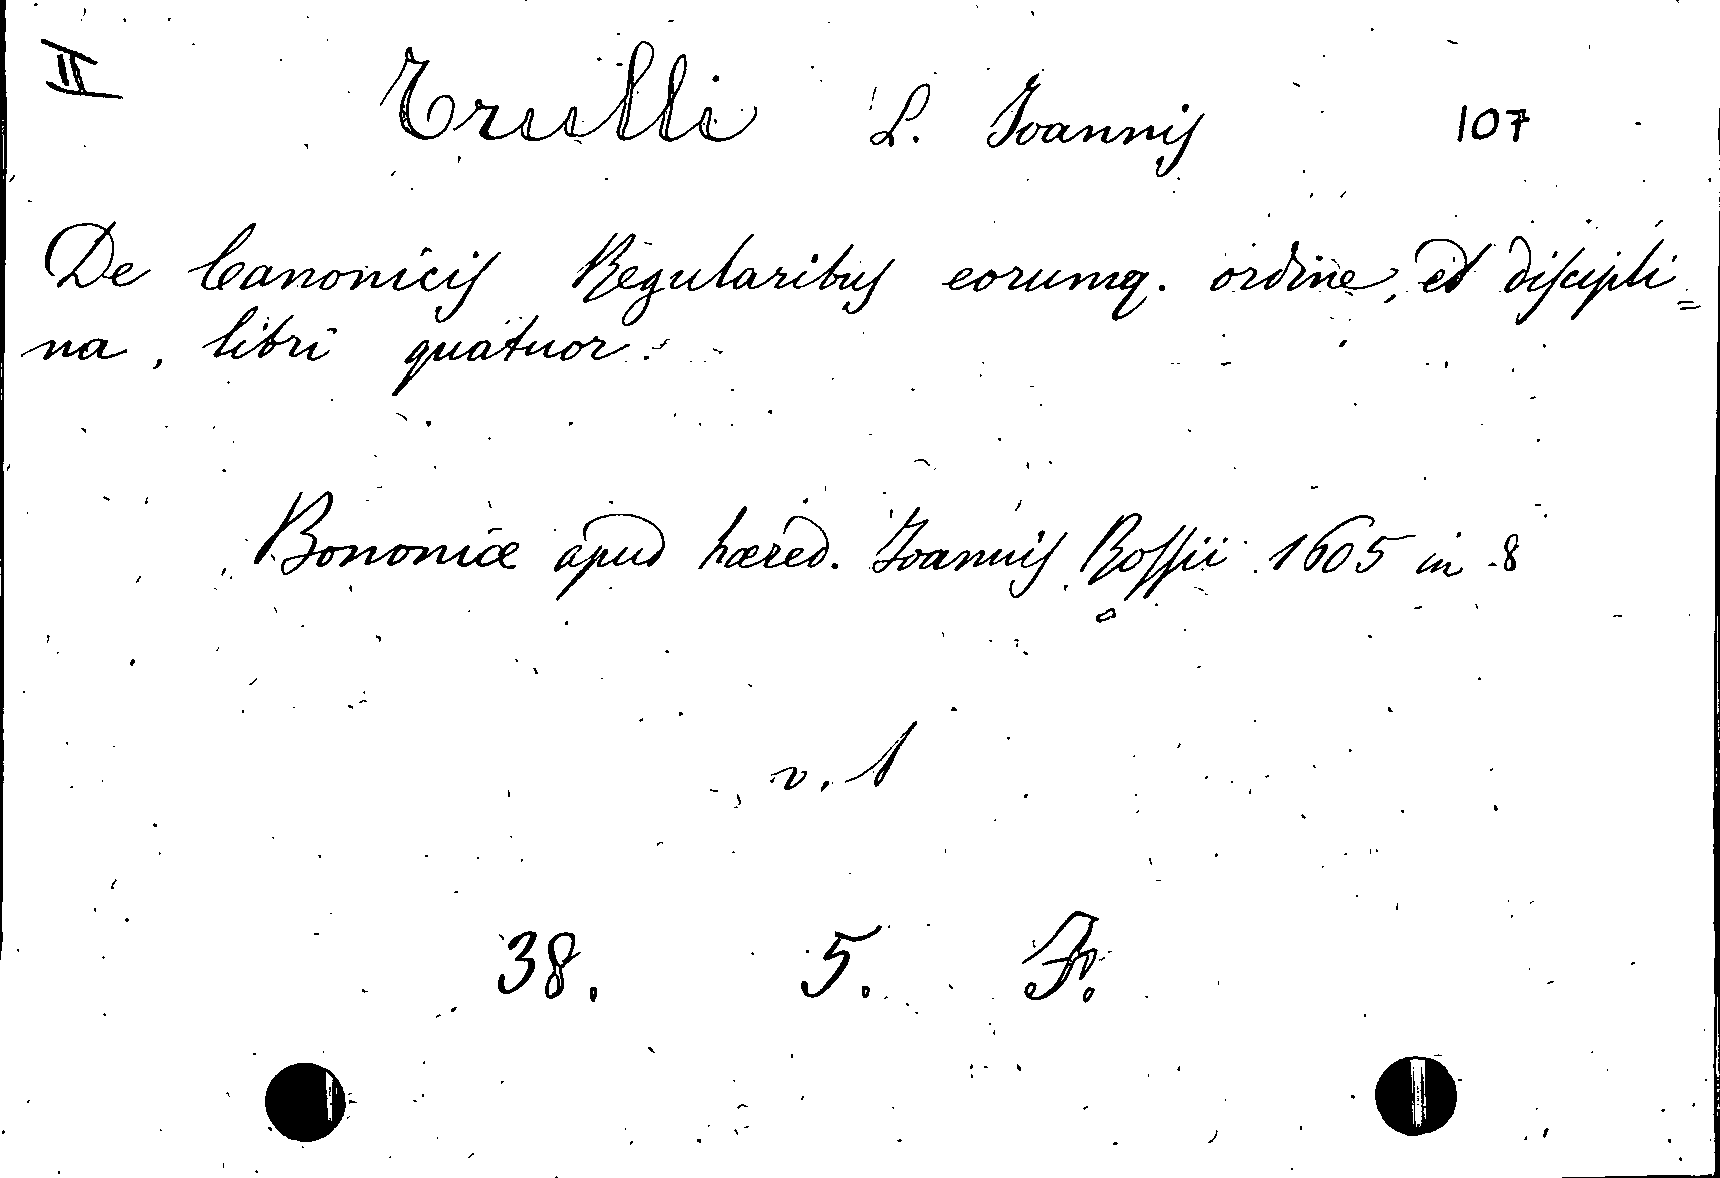 II Trulli L. Joannis 107
De Canonicis Regularibus eorumq. ordine, et discipli=
na, libri quatuor.
Bononiæ apud hæred. Joannis Rossii 1605 in 8
v. 1
38. 5. F.